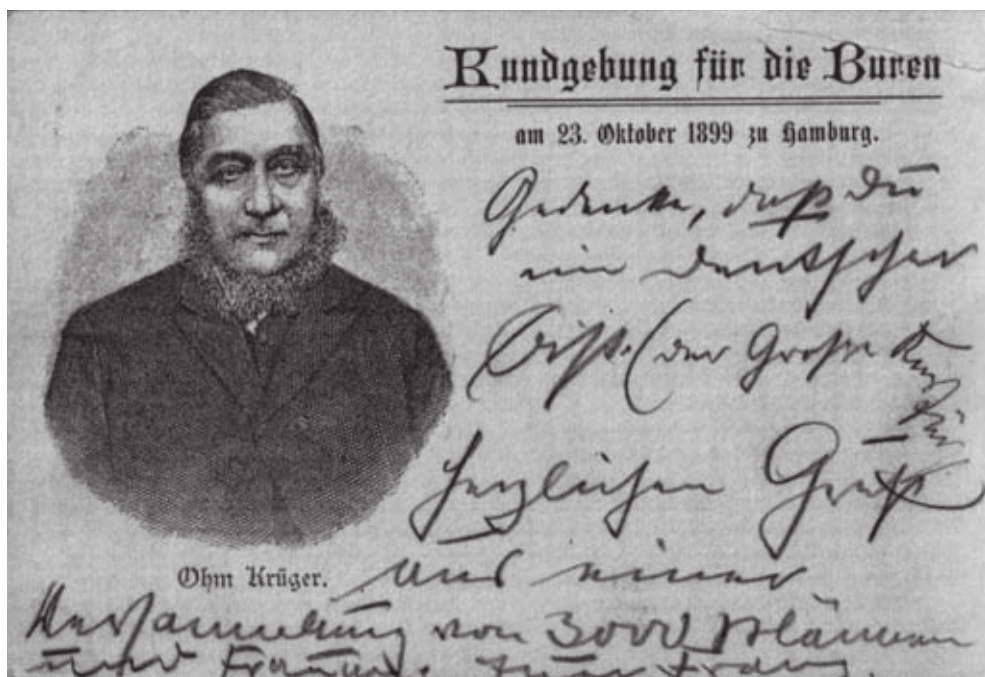 Kundgebung für die Buren
am 23. Oktober 1899 zu Hamburg.
Gedenke, daß Du
ein Deutscher
bist. (der Große Kurfürst)
Herzlichen Gruß
Ohm Krüger.
aus einer
Versammlung von 3000 Männern
und Frauen. Franz.